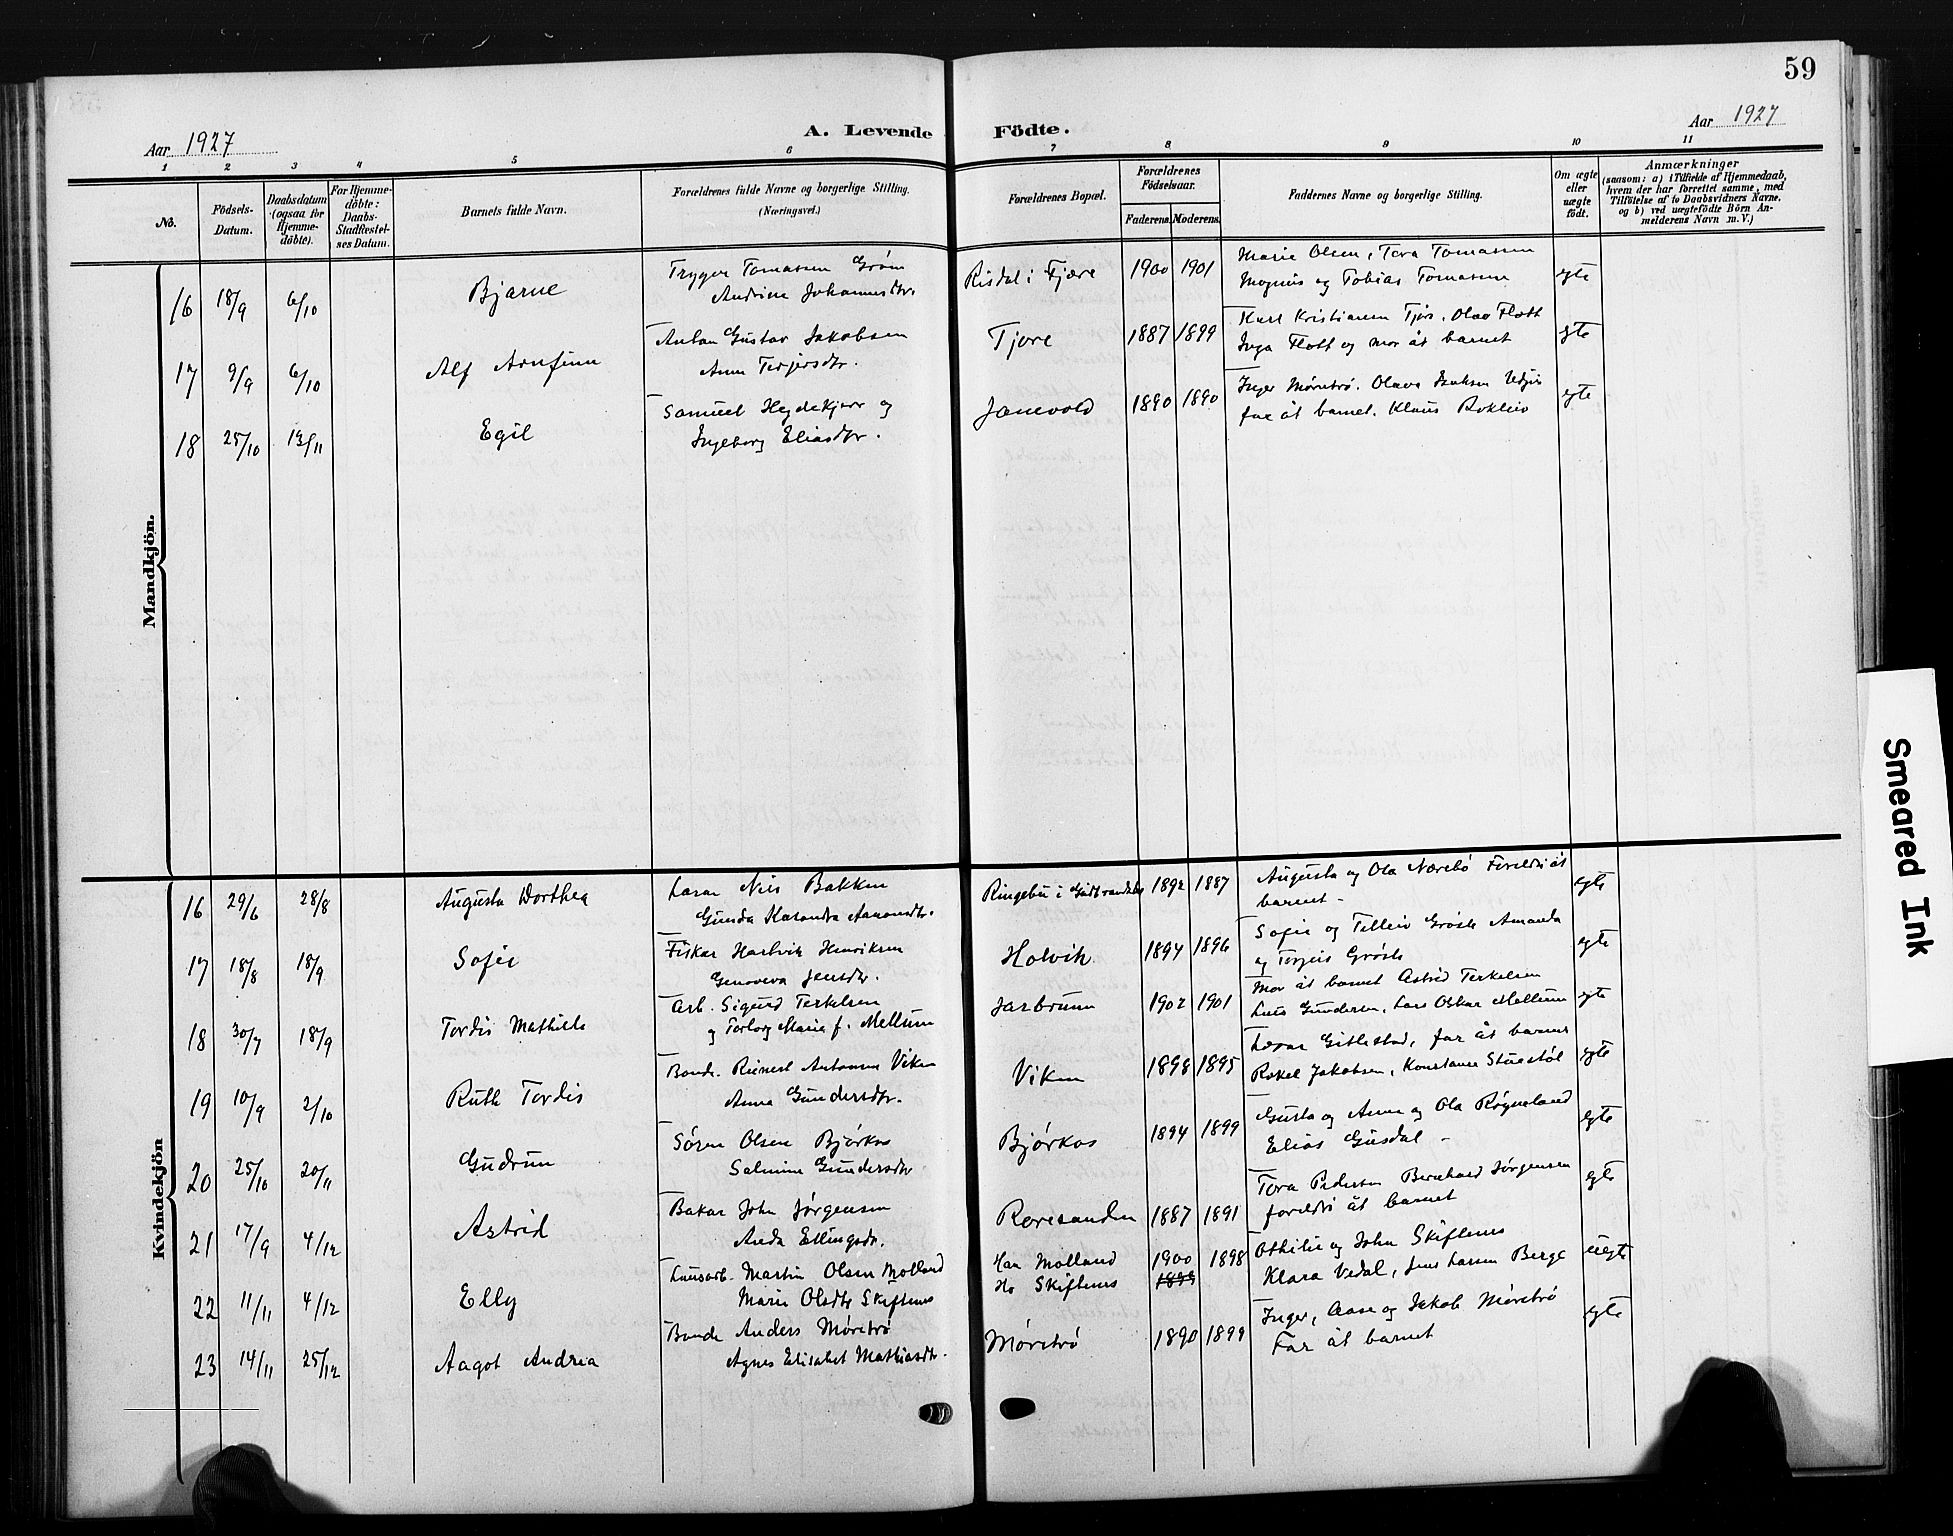 59
Aar 1927
A. Levende Födte.
Aar 1927
1 2 3 4 5 6 7 8 9 10 11
No.
Födsels-Datum.
Daabsdatum (ogsaa for Hjemme-döbte).
For Hjemme-döbte: Daabs-Stadfæstel-ses Datum.
Barnets fulde Navn.
Forældrenes fulde Navne og borgerlige Stilling. (Næringsvei.)
Forældrenes Bopæl.
Forældrenes Födselsaar.
Faderens. Moderens.
Faddernes Navne og borgerlige Stilling.
Om ægte eller uægte födt.
Anmærkninger
(saasom: a) i Tilfælde af Hjemmedaab, hvem der har forrettet samme, med Tilföielse af to Daabsvidners Navne, og b) ved uægtefödte Börn An-melderens Navn m. V.)
Mandkjön.
16 18/9 6/10 Bjarne
Trygve Tomassen Grøm
Andrine Johannesdtr.
Risdal i Fjære 1900 1901
Marie Olsen, Tora Tomassen
Magnus og Tobias Tomassen
egte
17 9/9 6/10 Alf Arnfinn
Anton Gustav Jakobsen
Anna Terjersdtr.
Tjore 1887 1899
Karl Kristiansen Tjore. Olav Flott
Inga Flott og mor åt barnet
egte
18 25/10 13/11 Egil
Samuel Heydekjær og
Ingeborg Eliasdtr.
Janevold 1890 1890
Inger Møretrø. Olava Isaksen
far åt barnet. Klaus
egte
Kvindekjön
16 29/6 28/8 Augusta Dorthea
Lærar Nils Bakken
Gunda Kasandra Aanondtr.
Ringebu i Gudbrandsdal 1892 1887
Augusta og Ola Nærebø Foreldri åt
barnet -
egte
17 18/8 18/9 Sofie
Fiskar Hartvik Henriksen
Genoveva Jensdtr.
Holvik. 1894 1896
Sofie og Tellev Grøsle Amanda
og Torjus Grøsle
egte
18 30/7 18/9 Tordis Mathilde
Arb. Sigurd Terkelsen
og Torborg Maria f. Mellum
Jarbrunn 1902 1901
Mor åt barnet Astrid Terkelsen
Lars Gundersen, Lars Oskar Mellum
egte
19 10/9 2/10 Ruth Tordis
Bonde. Reinert Antonsen Viken
Anna Gundersdtr.
Viken 1898 1895
Lærar Gitlestad, far åt barnet
Rakel Jakobsen, Konstanse Stuestøl
egte
20 25/10 20/11 Gudrun
Søren Olsen Bjørkos
Salmine Gundersdtr.
Bjørkos 1894 1899
Gusta og Anna og Ola Røyneland
Elias Gusdal -
egte
21 17/9 4/12 Astrid
Bakar John Jørgensen
Anda Ellingsdtr.
Roresanden 1887 1891
Tora Pedersen Bernhard Jørgensen
foreldri åt barnet
egte
22 11/11 4/12 Elly
Lausarb. Martin Olsen Molland
Marie Olsdtr Skiftenes
Han Molland 1900 1898
Ho Skiftenes 1899
Othilie og John Skiftenes
Klara Vedal, Jens Larsen Berge
uegte
23 14/11 25/12 Aagot Andrea
Bonde Anders Møretrø
Agnes Elisabet Mathiasdtr.
Møretrø 1890 1899
Inger, Aase og Jakob Møretrø
Far åt barnet
egte
Smeared Ink